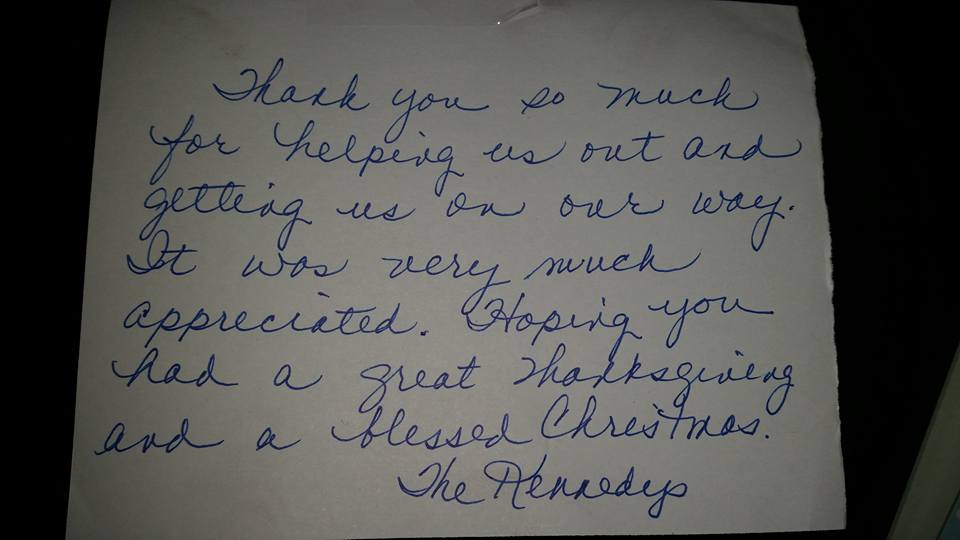 Thank you so much
for helping us out and
getting us on our way.
It was very much
appreciated. Hoping you
had a great Thanksgiving
and a blessed Christmas.
The Kennedys